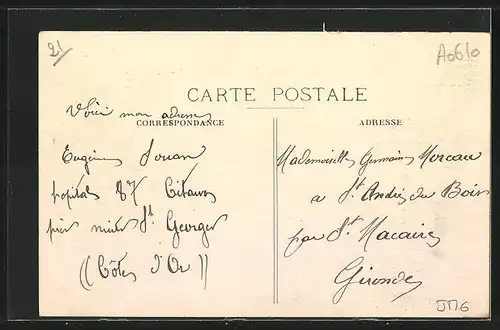 21
A0610
CARTE POSTALE
Voici mon adresse
CORRESPONDANCE
Eugène Jouan
hopital 87 Citeaux
près nuits St Georges
((Côte d'Or))
ADRESSE
Mademoiselle Germaine Moreau
a St André du Bois
par St Macaire
Gironde